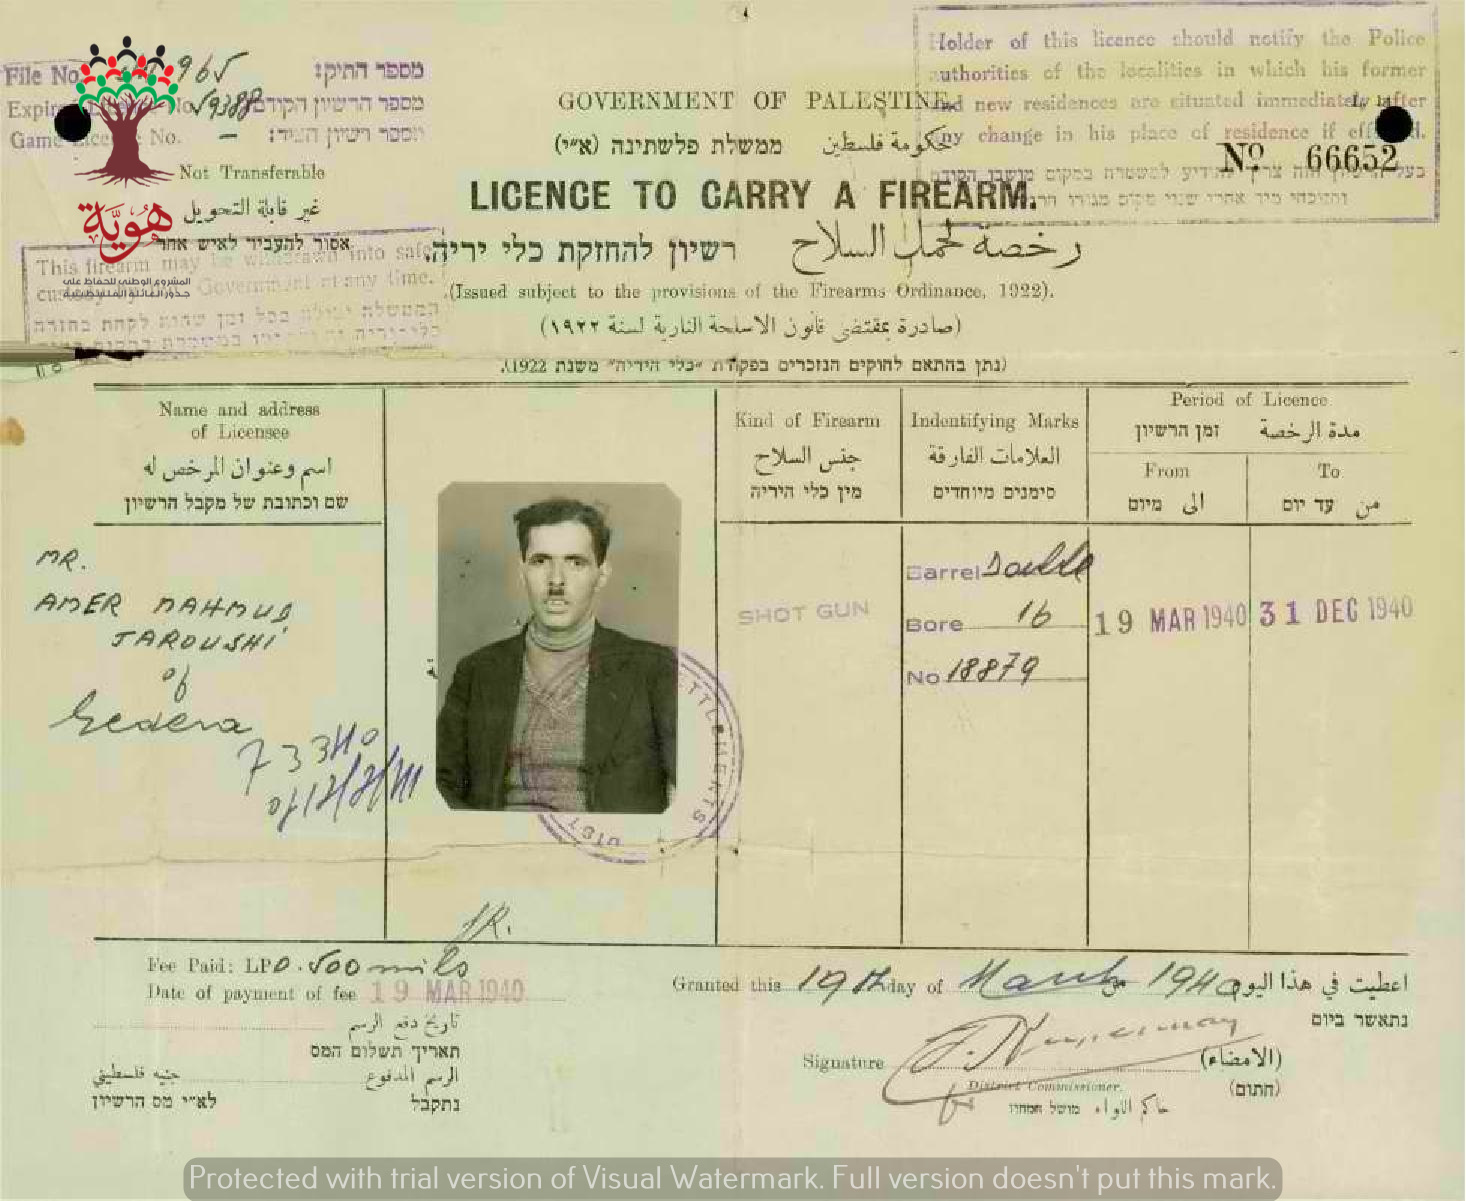 File No. 965 מספר התיק:
No. 59388 מספר הרשיון הקודם
Game Licence No. — מספר רשיון הציד:
Not Transferable
غير قابلة التحويل
אסור להעביר לאיש אחר
هوية
المشروع الوطني للحفاظ على
جذور العائلة الفلسطينية
This firearm may be withdrawn into safe
custody by Government at any time.
הממשלה יכולה בכל זמן שהוא לקחת בחזרה
GOVERNMENT OF PALESTINE.
ממשלת פלשתינה (א״י) حكومة فلسطين
LICENCE TO CARRY A FIREARM.
רשיון להחזקת כלי יריה. رخصة لحمل السلاح
(Issued subject to the provisions of the Firearms Ordinance, 1922).
(صادرة بمقتضى قانون الاسلحة النارية لسنة ١٩٢٢)
(נתן בהתאם לחוקים הנזכרים בפקודת ״כלי היריה״ משנת 1922).
Holder of this licence should notify the Police
authorities of the localities in which his former
and new residences are situated immediately after
any change in his place of residence if effected.
Nº 66652
Name and address
of Licensee
اسم وعنوان المرخص له
שם וכתובת של מקבל הרשיון
Kind of Firearm
جنس السلاح
מין כלי היריה
Indentifying Marks
العلامات الفارقة
סימנים מיוחדים
Period of Licence
זמן הרשיון مدة الرخصة
From To
מיום الى עד יום من
MR.
AMER MAHMUD
JAROUSHI
of
Gedera
73340
SHOT GUN
Barrel Double
Bore 16
No 18879
19 MAR 1940 31 DEC 1940
SETTLEMENTS
DIST
Fee Paid: LP 0.500 mils
Date of payment of fee 19 MAR 1940
تاريخ دفع الرسم
תאריך תשלום המס
جنيه فلسطيني الرسم المدفوع
לא״י מס הרשיון נתקבל
Granted this 19th day of March 1940 اعطيت في هذا اليوم من
נתאשר ביום
Signature (الامضاء)
District Commissioner. (חתום)
מושל המחוז حاكم اللواء
Protected with trial version of Visual Watermark. Full version doesn't put this mark.